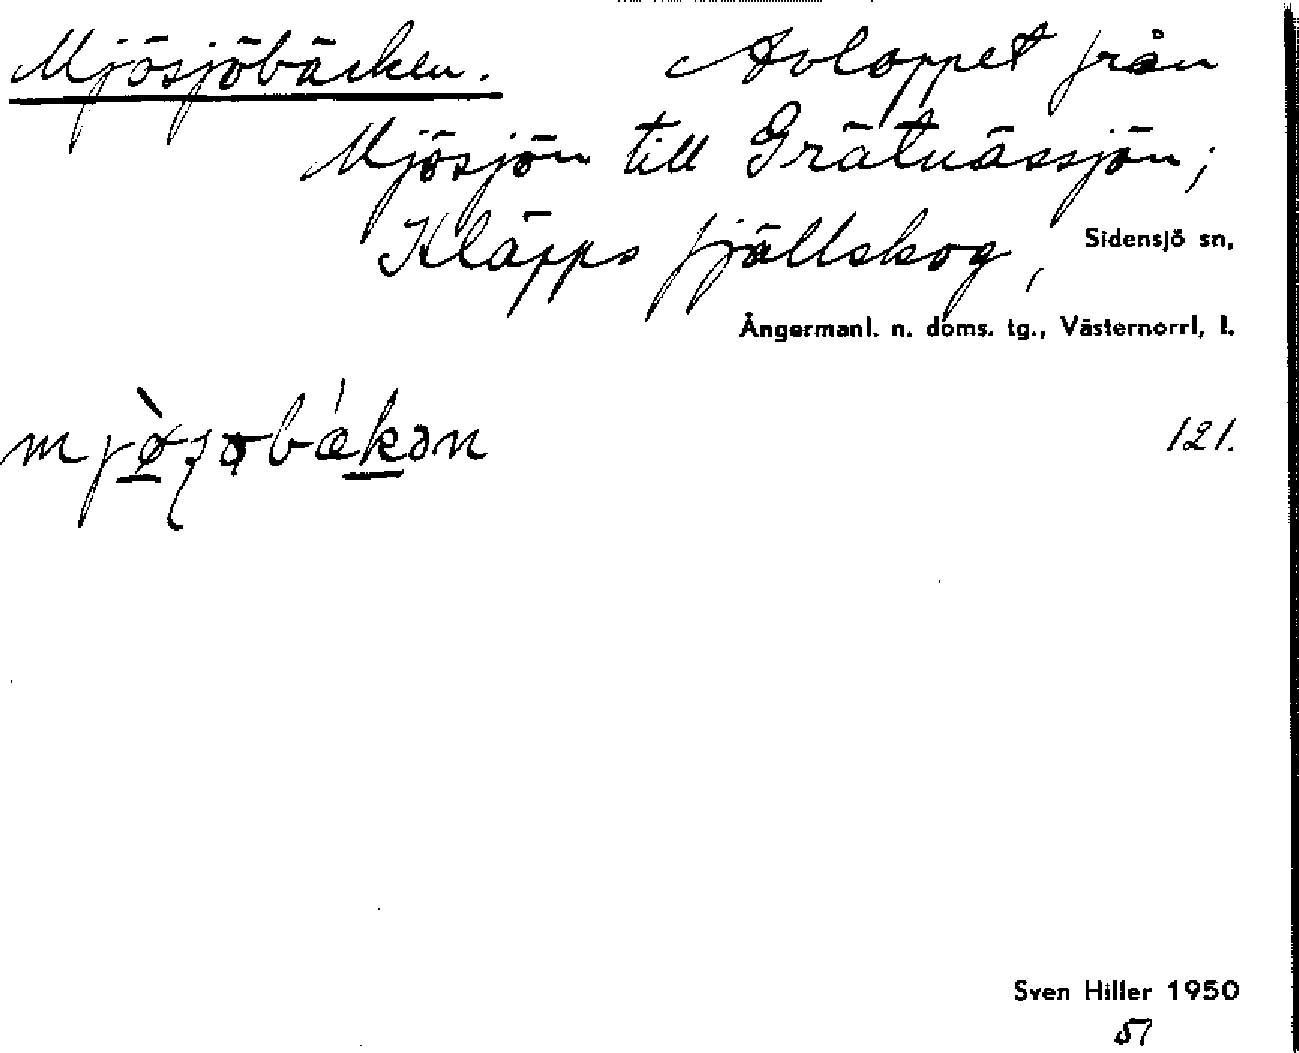 Mjösjöbäcken. Avloppet från
Mjösjön till Grätnässjön;
Kläpps fjällskog, Sidensjö sn,
Ångermanl. n. doms. tg., Västernorrl. l.
121.
Sven Hiller 1950
51